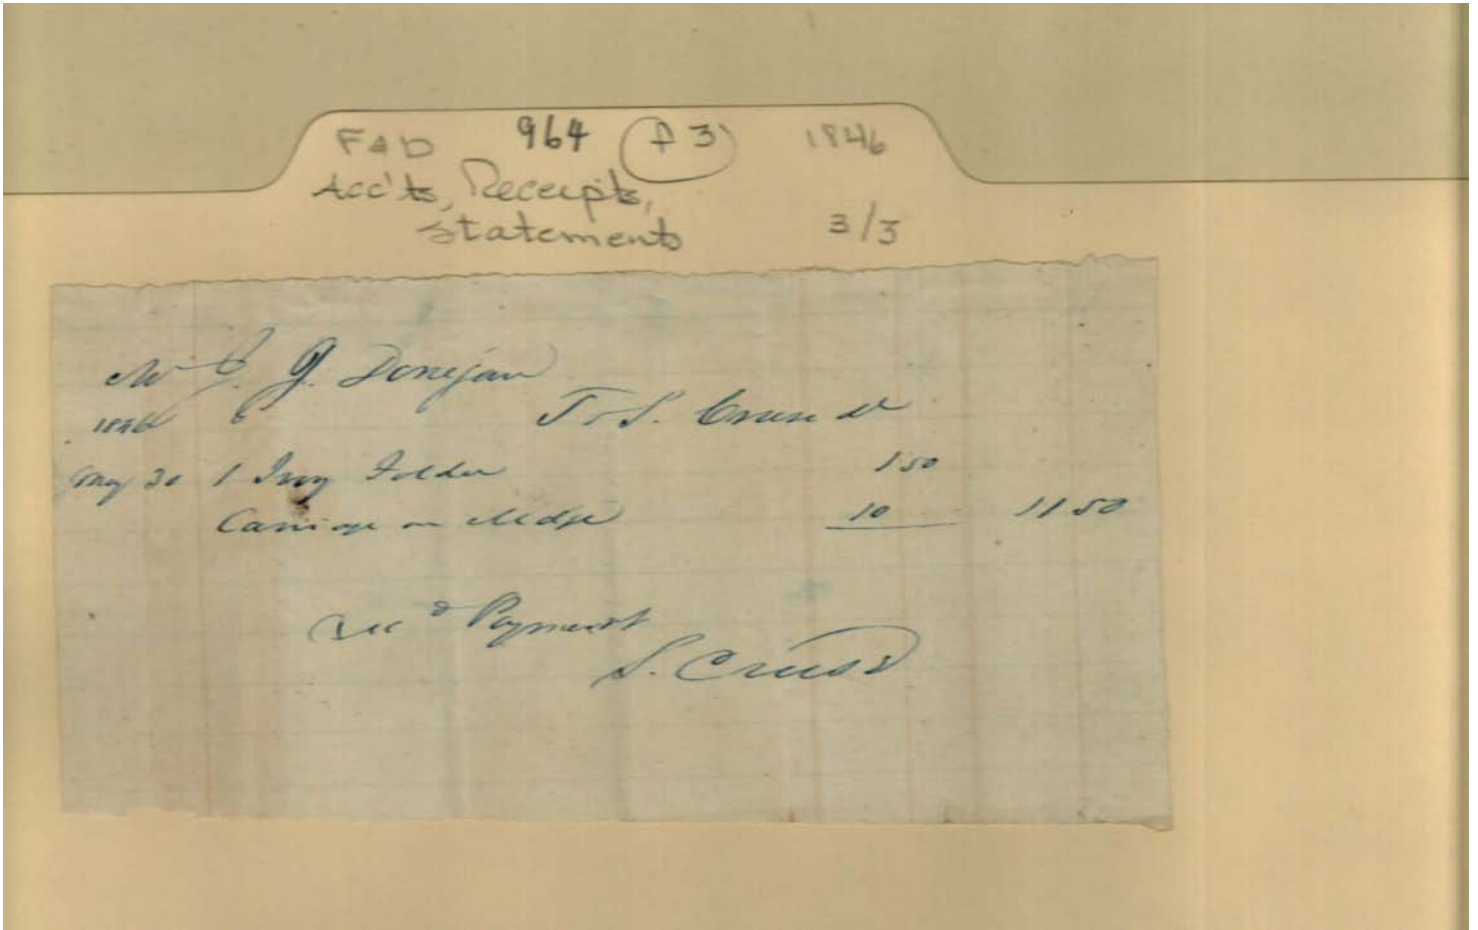 F&D 964 (f 3) 1846
Acc'ts, Receipts,
Statements 3/3
Mr J. J. Donegan
1846 To S. Cruse Dr
May 30 1 Ivory Folder 1 50
Carriage on Mdse 10 11 50
Recd Payment
S. Cruse